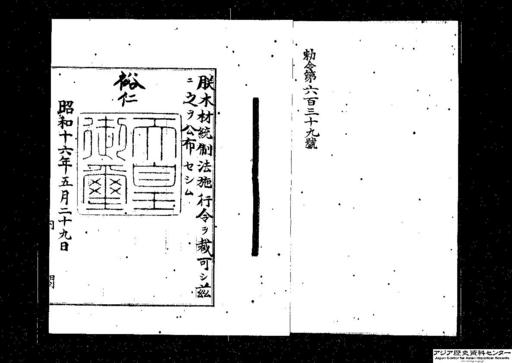 勅令第六百三十九號
朕木材統制法施行令ヲ裁可シ茲
ニ之ヲ公布セシム
裕仁
天皇御璽
昭和十六年五月二十九日
内閣
アジア歴史資料センター
Japan Center for Asian Historical Records